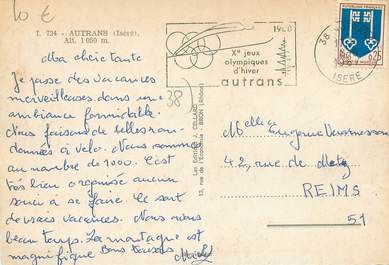 10 €
I. 724 - AUTRANS (Isère)
Alt. 1 050 m.
Ma chère tante
Je passe des vacances
merveilleuses dans une
ambiance formidable.
Nous faisons de belles ran-
données à vélo. Nous sommes
au nombre de 1000. C'est
très bien organisé aucun
souci à se faire. Ce sont
de vrais vacances. Nous avons
beau temps. La montagne est
magnifique Bons baisers
Michel
38
Les Editions J. CELLARD
13, rue de l'Economie - BRON (Rhône)
Xe jeux
olympiques
d'hiver
autrans
38
ISERE
REPUBLIQUE FRANÇAISE
0,25
Melle Eugénie
42, rue de Metz
REIMS
51